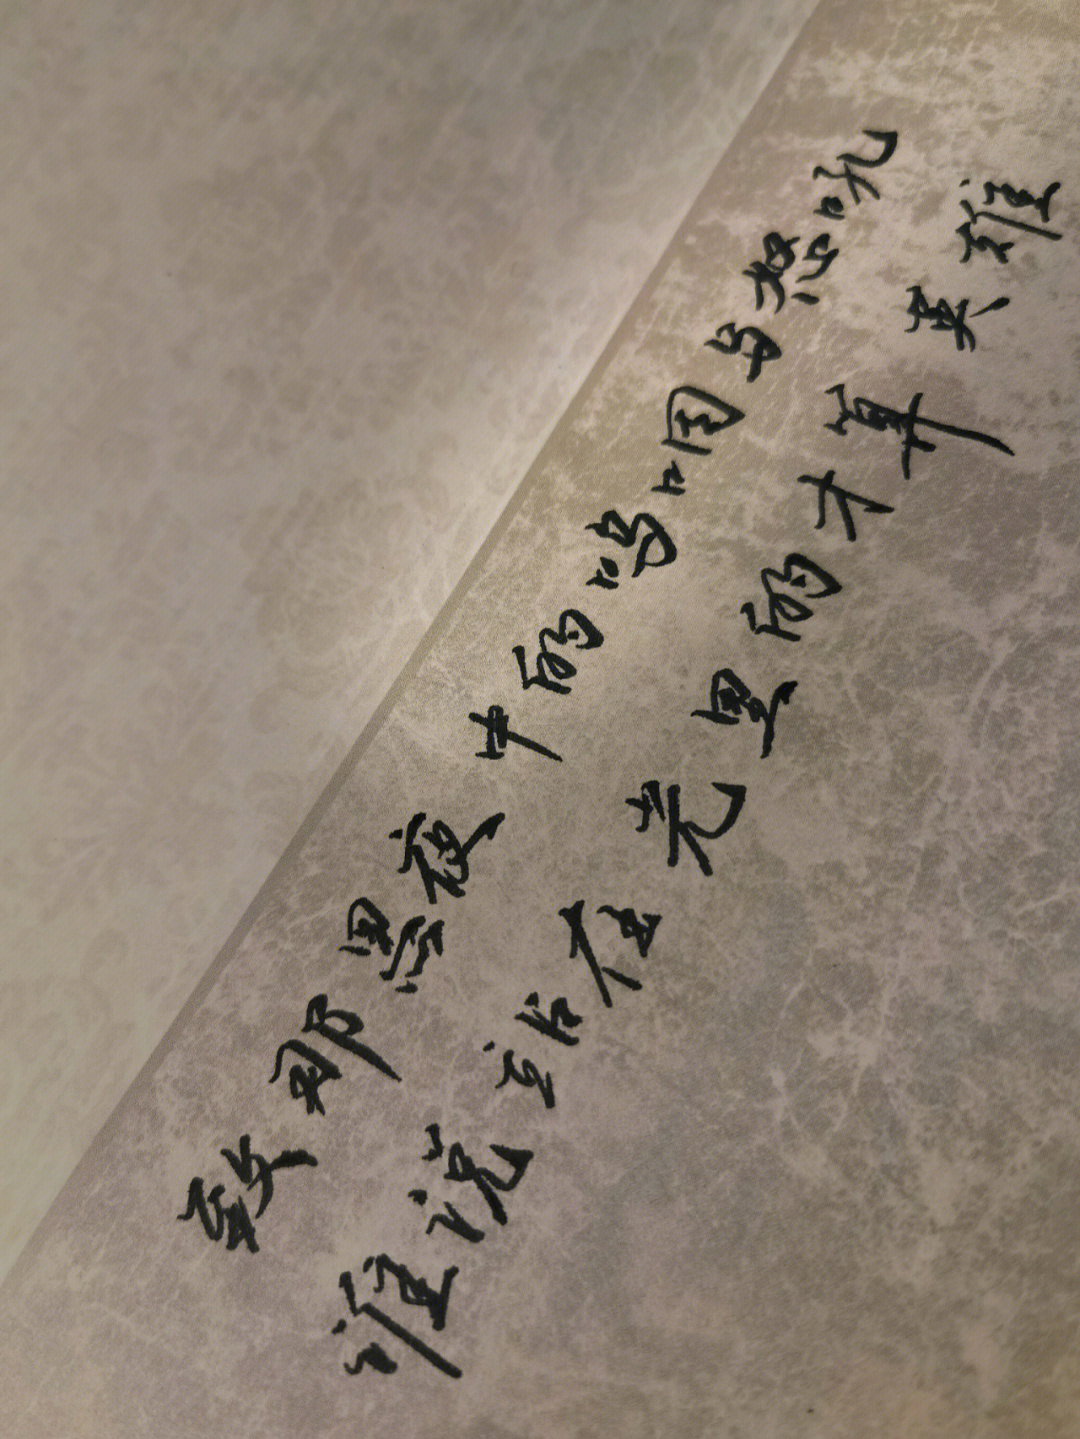 致那黑夜中的呜咽与怒吼
谁说站在光里的才算英雄